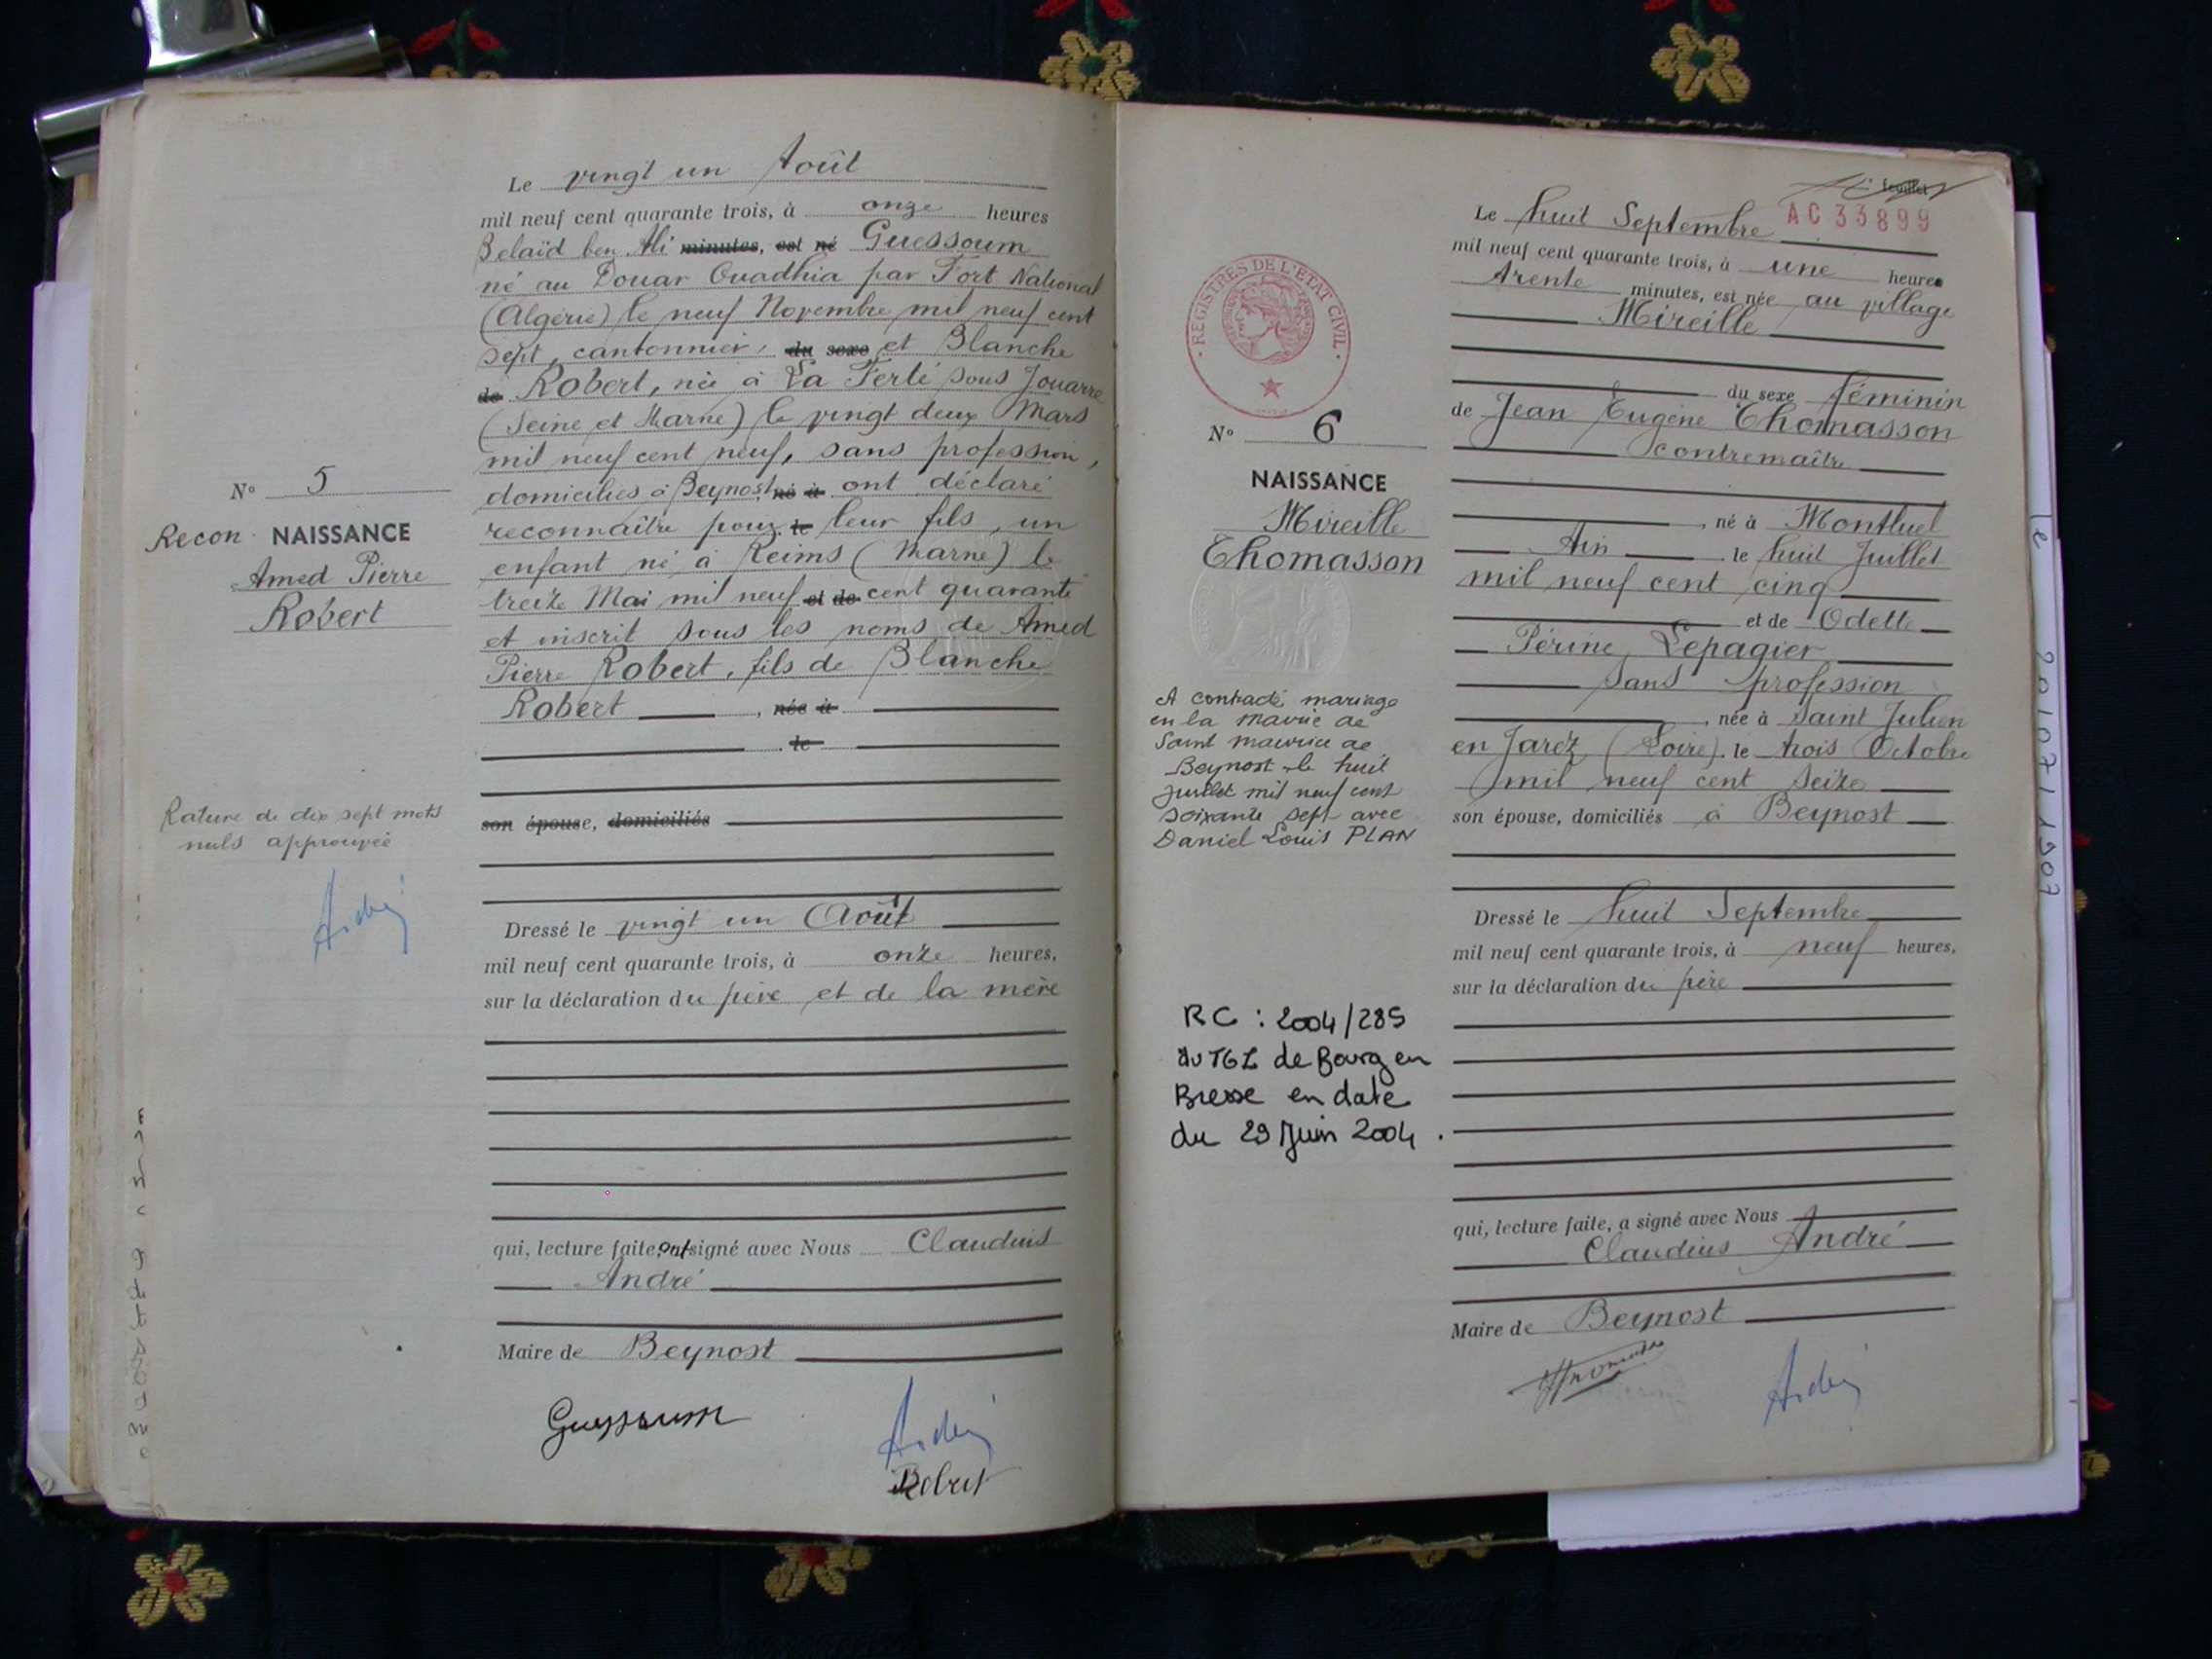 Le vingt un Août
mil neuf cent quarante trois, à onze heures
Belaïd ben Ali minutes, est né Guessoum
né au Douar Ouadhia par Fort National
(Algérie) le neuf Novembre mil neuf cent
sept, cantonnier, du sexe et Blanche
de Robert, née à La Ferté sous Jouarre
(Seine et Marne) le vingt deux Mars
mil neuf cent neuf, sans profession,
domiciliés à Beynost né à ont déclaré
reconnaître pour le leur fils, un
enfant né à Reims (Marne) le
treize Mai mil neuf et de cent quarante
et inscrit sous les noms de Amed
Pierre Robert, fils de Blanche
Robert , née à
le
son épouse, domiciliés
Dressé le vingt un Août
mil neuf cent quarante trois, à onze heures,
sur la déclaration du père et de la mère
qui, lecture faite, ont signé avec Nous Claudius
André
Maire de Beynost
Guessoum
Robert
N° 5
Recon. NAISSANCE
Amed Pierre
Robert
Rature de dix sept mots
nuls approuvée
feuillet
AC 33899
Le huit Septembre
mil neuf cent quarante trois, à une heure
trente minutes, est née au village
Mireille
du sexe féminin
de Jean Eugène Thomasson
contremaître
, né à Montluel
Ain le huit Juillet
mil neuf cent cinq
et de Odette
Périne Lepagier
sans profession
, née à Saint Julien
en Jarez (Loire). le trois Octobre
mil neuf cent seize
son épouse, domiciliés à Beynost
Dressé le huit Septembre
mil neuf cent quarante trois, à neuf heures,
sur la déclaration du père
qui, lecture faite, a signé avec Nous
Claudius André
Maire de Beynost
REGISTRES DE L'ETAT CIVIL
N° 6
NAISSANCE
Mireille
Thomasson
A contracté mariage
en la mairie de
Saint Maurice de
Beynost le huit
juillet mil neuf cent
soixante sept avec
Daniel Louis PLAN
RC : 2004/285
du TGI de Bourg en
Bresse en date
du 29 Juin 2004.